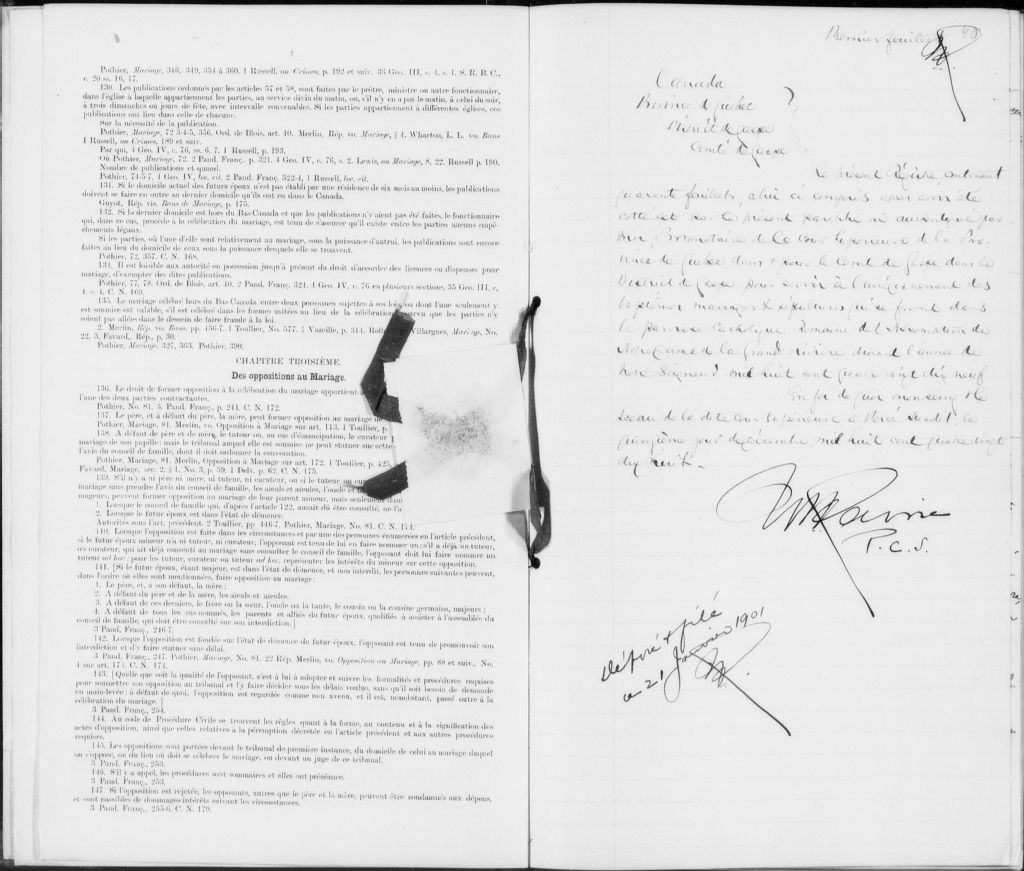 Pothier, Mariage, 346, 349, 354 à 360. 1 Russell, on Crimes, p. 192 et suiv. 35 Geo. III, c. 4, s. 1. S. R. B. C.,
c. 20 ss. 16, 17.
130. Les publications ordonnés par les articles 57 et 58, sont faites par le prêtre, ministre ou autre fonctionnaire,
dans l'église à laquelle appartiennent les parties, au service divin du matin, ou, s'il n'y en a pas le matin, à celui du soir,
à trois dimanches ou jours de fête, avec intervalle convenables. Si les parties appartiennent à différentes églises, ces
publications ont lieu dans celle de chacune.
Sur la nécessité de la publication.
Pothier, Mariage, 72 3-4-5, 356, Ord. de Blois, art. 40. Merlin, Rép. vo. Mariage, § 4. Wharton, L. L. vo. Bans
1 Russell, on Crimes, 189 et suiv.
Par qui, 4 Geo. IV, c. 76, ss. 6. 7. 1 Russell, p. 193.
Où Pothier, Mariage, 72. 2 Pand. Franç. p. 321. 4 Geo. IV, c. 76, s. 2. Lewis, on Mariage, 8, 22. Russell p. 190.
Nombre de publications et quand.
Pothier, 74-5-7. 4 Geo. IV, loc. cit. 2 Pand. Franç. 322-4, 1 Russell, loc. cit.
131. Si le domicile actuel des futurs époux n'est pas établi par une résidence de six mois au moins, les publications
doivent se faire en outre au dernier domicile qu'ils ont eu dans le Canada.
Guyot, Rép. vis. Bans de Mariage, p. 175.
132. Si la dernier domicile est hors du Bas-Canada et que les publications n'y aient pas été faites, le fonctionnaire
qui, dans ce cas, procède à la célébration du mariage, est tenu de s'assurer qu'il existe entre les parties aucuns empê-
chements légaux.
Si les parties, où l'une d'elle sont relativement au mariage, sous la puissance d'autrui, les publications sont encore
faites au lieu du domicile de ceux sous la puissance desquels elle se trouvent.
Pothier, 72, 357. C. N. 168.
134. Il est loisible aux autorité en possession jusqu'à présent du droit d'accorder des licences ou dispenses pour
mariage, d'exempter des dites publications.
Pothier, 77, 78. Ord. de Blois, art. 40. 2 Pand. Franç. 324. 4 Geo. IV, c. 76 en plusieurs sections, 35 Geo. III, c.
4, s. 4, C. N. 169.
135. Le mariage célébré hors du Bas-Canada entre deux personnes sujettes à ses lois, ou dont l'une seulement y
est soumise est valable, s'il est célébré dans les formes usitées au lieu de la célébration que les parties n'y
soient pas allées dans le dessein de faire fraude à la loi.
2. Merlin, Rép. vo. Bans. pp. 436-7. 1 Toullier, No. 577. 1 Vazeille, p. 314. Villargues, Mariage, No.
22, 3, Favard, Rép., p, 30.
Pothier, Mariage, 327, 363. Pothier, 390.
CHAPITRE TROISIÈME.
Des oppositions au Mariage.
136. Le droit de former opposition à la célébration du mariage appartient
l'une des deux parties contractantes.
Pothier, No. 81. 3. Pand. Franç., p. 241. C. N. 172.
137. Le père, et à défaut du père, la mère, peut former opposition au mariage
Pothier, Mariage, 81. Merlin, vo. Opposition à Mariage sur art. 113. 1 Toullier, p.
138. A défaut de père et de mère, le tuteur ou, au cas d'émancipation, le curateur
mariage de son pupille: mais le tribunal auquel elle est soumise ne peut statuer sur cette
l'avis du conseil de famille, dont il doit ordonner la convocation.
Pothier, Mariage, 81. Merlin, Opposition à Mariage sur art. 172. 1 Toullier, p. 425,
Favard, Mariage, sec. 2, § 1, No. 3, p. 59. 1 Delv. p. 62. C. N. 175.
139. S'il n'y a ni père ni mère, ni tuteur, ni curateur, ou si le tuteur ou
mariage sans prendre l'avis du conseil de famille, les aïeuls et aïeules, l'oncle et
majeurs, peuvent former opposition au mariage de leur parent mineur, mais seulement dans
1. Lorsque le conseil de famille qui, d'après l'article 122, aurait dû être consulté, ne l'a
2. Lorsque le futur époux est dans l'état de démence.
Autorités sous l'art. précédent. 2 Toullier, pp 446-7. Pothier, Mariage, No. 81. C. N. 174.
140. Lorsque l'opposition est faite dans les circonstances et par une des personnes énumérées en l'article précédent,
si le futur époux mineur n'a ni tuteur, ni curateur, l'opposant est tenu de lui en faire nommer un; s'il a déjà un tuteur,
ou curateur, qui ait déjà consenti au mariage sans consulter le conseil de famille, l'opposant doit lui faire nommer un
tuteur ad hoc, pour les tuteur, curateur ou tuteur ad hoc, représenter les intérêts du mineur sur cette opposition.
141. [Si le futur époux, étant majeur, est dans l'état de démence, et non interdit, les personnes suivantes peuvent,
dans l'ordre où elles sont mentionnées, faire opposition au mariage:
1. Le père, et, à son défaut, la mère;
2. A défaut du père et de la mère, les aïeuls et aïeules.
3. A défaut de ces derniers, le frère ou la sœur, l'oncle ou la tante, le cousin ou la cousine germains, majeurs;
4. A défaut de tous les sus-nommés, les parents et alliés du futur époux, qualifiés à assister à l'assemblée du
conseil de famille, qui doit être consulté sur son interdiction.]
3 Pand. Franç., 246-7.
142. Lorsque l'opposition est fondée sur l'état de démence du futur époux, l'opposant est tenu de promouvoir son
interdiction et d'y faire statuer sans délai.
3 Pand. Franç., 247. Pothier, Mariage, No. 81. 22 Rép. Merlin, vo. Opposition au Mariage, pp. 88 et suiv., No.
4 sur art. 174. C. N. 174.
143. [Quelque que soit la qualité de l'opposant, c'est à lui à adopter et suivre les formalités et procédures requises
pour soumettre son opposition au tribunal et l'y faire décider sous les délais voulus, sans qu'il soit besoin de demande
en main-levée: à défaut de quoi, l'opposition est regardée comme non avenu, et il est, nonobstant, passé outre à la
célébration du mariage.]
3 Pand. Franç., 254.
144. Au code de Procédure Civile se trouvent les règles quant à la forme, au contenu et à la signification des
actes d'opposition, ainsi que celles relatives à la péremption décrétée en l'article précédent et aux autres procédures
requises.
145. Les oppositions sont portées devant le tribunal de première instance, du domicile de celui au mariage duquel
on s'oppose, ou du lieu où doit se célébrer le mariage, ou devant un juge de ce tribunal.
3 Pand. Franç., 253.
146. S'il y a appel, les procédures sont sommaires et elles ont préséance.
3 Pand. Franç., 253.
147. Si l'opposition est rejetée, les opposants, autres que le père et la mère, peuvent être condamnés aux dépens,
et sont passibles de dommages-intérêts suivant les circonstances.
3 Pand. Franç., 255-6. C. N. 179.
Premier feuillet 40
Canada
Province de Quebec
District de Gaspé
Comté de Gaspé
Le présent Régistre contenant
quarante feuillets, celui ci compris apres avoir été
cotté et par le présent paraphe an authentiqué par
moi, Protonotaire de la Cour Superieure de la Pro-
vince de Quebec dans & pour le Comté de Gaspé dans le
District de Gaspé pour servir à l'enregistrement des
baptêmes mariages & sépultures qui se feront dans
la paroisse Catholique Romaine de l'Assomption de
Notre Dame de la Grande Rivière durant l'année de
Notre Seigneur mil huit cent quatre vingt dix neuf
En foi de quoi mon seing & le
sceau de la dite Cour Superieure à Percé lundi, le
quinzième jour de Décembre, mil huit cent quatre vingt
dix huit.
P.C.S.
Déposé & filé
ce 21 Janvier 1901